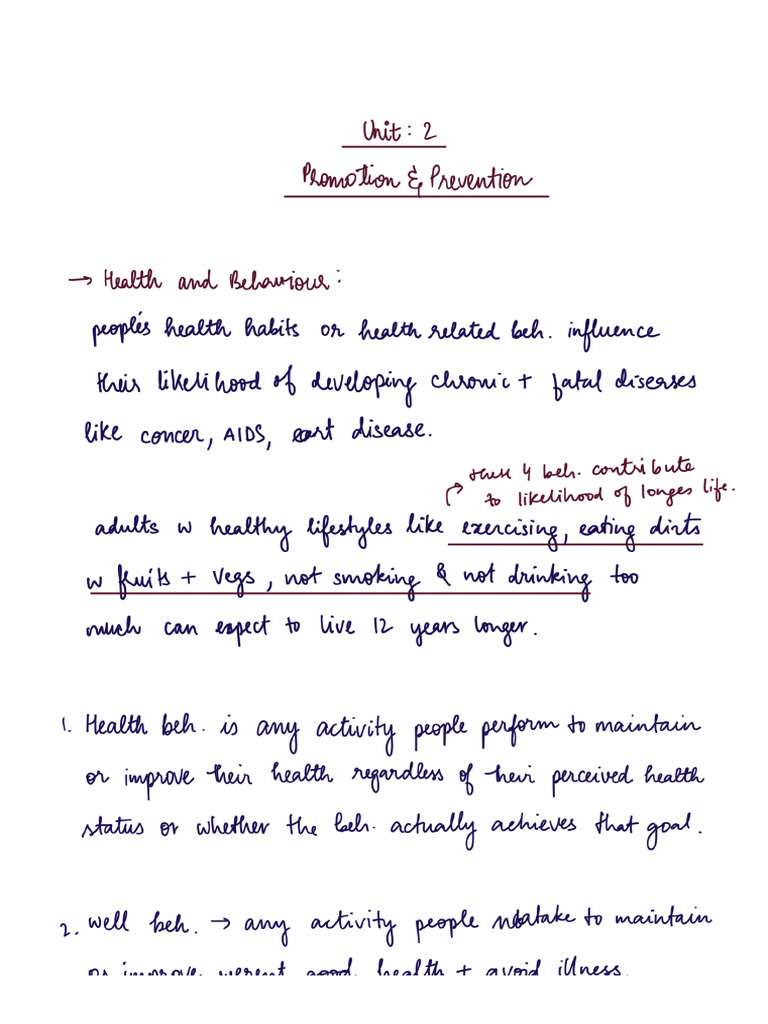 Unit: 2
Promotion & Prevention
→ Health and Behaviour:
people's health habits or health related beh. influence
their likelihood of developing chronic + fatal diseases
like concer, AIDS, eart disease.
these 4 beh. contribute
to likelihood of longer life.
adults w healthy lifestyles like exercising, eating dirts
w fruits + vegs, not smoking & not drinking too
much can expect to live 12 years longer.
1. Health beh. is any activity people perform to maintain
or improve their health regardless of their perceived health
status or whether the beh. actually achieves that goal.
2. well beh. → any activity people take to maintain
or improve good health + avoid illness.